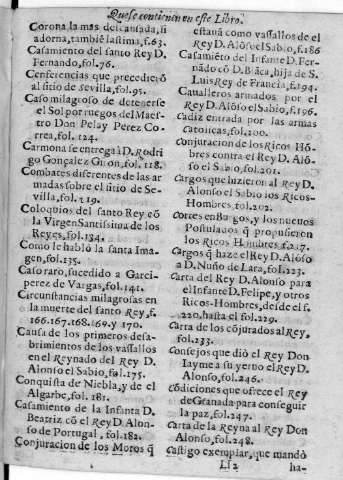 Que se contienen en este Libro.
Corona la mas descansada, si
adorna, tambiẽ lastima, f.63.
Casamiento del santo Rey D.
Fernando, fol.76.
Conferencias que precediero
al sitio de sevilla, fol.95.
Caso milagroso de detenerse
el Sol por ruegos del Maes-
tro Don Pelay Perez Co-
rrea, fol. 124.
Carmona se entrega à D. Rodri
go Gonçalez Giron, fol. 128.
Combates diferentes de las ar
madas sobre el sitio de Se-
villa, fol. 129.
Coloquios del santo Rey cõ
la Virgen Santissima de los
Reyes, fol.134.
Como le hablò la santa Ima-
gen, fol.135.
Caso raro, sucedido a Garci-
perez de Vargas, fol.141.
Circunstancias milagrosas en
la muerte del santo Rey, f.
166.167.168.169.y 170.
Causa de los primeros desa-
brimientos de los vassallos
en el Reynado del Rey D.
Alonso el Sabio, fol.175.
Conquista de Niebla, y de el
Algarbe, fol. 181.
Casamiento de la Infanta D.
Beatriz cõ el Rey D. Alon-
so de Portugal, fol.182.
Conjuracion de los Moros q̃
estauã como vassallos de el
Rey D. Alõso el Sabio, f.186
Casamiẽto del Infante D. Fer-
nãdo cõ D. Blãca, hija de S.
Luis Rey de Francia, f.194.
Cavalleros armados por el
Rey D. Alõso el Sabio, f.196.
Cadiz entrada por las armas
Catolicas, fol.200.
Conjuracion de los Ricos Hõ-
bres contra el Rey D. Alõ-
so el Sabio, fol.201.
Cargos que hizieron al Rey D.
Alonso el Sabio los Ricos-
Hombres, fol.202.
Cortes en Burgos, y los nueuos
Postulados q̃ propusieron
los Ricos Hombres, f.217.
Cargos q̃ haze el Rey D. Alõso
à D. Nuño de Lara, fol.223.
Carta del Rey D. Alonso para
el Infante D. Felipe, y otros
Ricos-Hombres, desde el f.
220. hasta el fol.229.
Carta de los cõjurados al Rey,
fol.233.
Consejos que diò el Rey Don
Iayme a su yerno el Rey D.
Alonso, fol.246.
Cõdiciones que ofrece el Rey
de Granada para conseguir
la paz, fol.247.
Carta de la Reyna al Rey Don
Alonso, fol.248.
Castigo exemplar, que mandò
Ll2 ha-